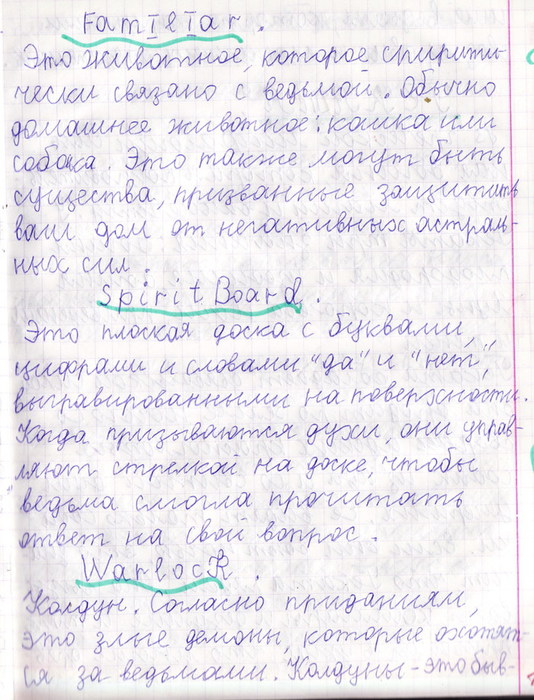 Familiar.
Это животное, которое спирити-
чески связано с ведьмой. Обычно
домашнее животное: кошка или
собака. Это также могут быть
существа, призванные защитить
ваш дом от негативных астраль-
ных сил.
Spirit Board.
Это плоская доска с буквами,
цифрами и словами "да" и "нет",
выгравированными на поверхности.
Когда призываются духи, они управ-
ляют стрелкой на доске, чтобы
ведьма смогла прочитать
ответ на свой вопрос.
Warlock.
Колдун. Согласно приданиям,
это злые демоны, которые охотят-
ся за ведьмами. Колдуны - это быв-